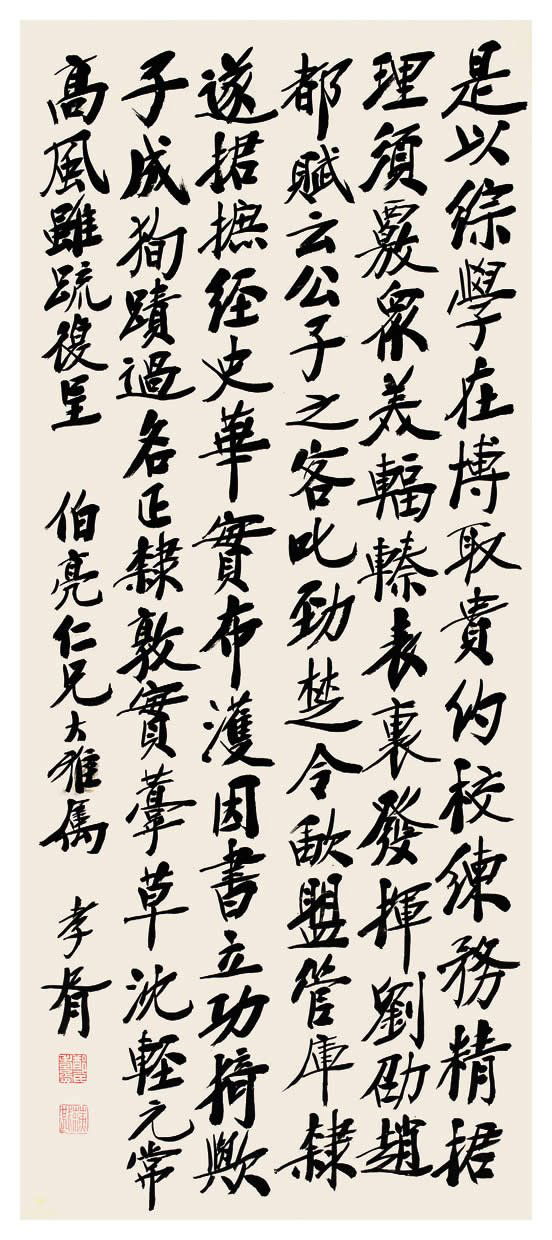 是以綜學在博取貴約校練務精捃
理須覈眾美輻輳表裏發揮劉劭趙
都賦云公子之客叱勁楚令歃盟管庫隸
遂捃摭經史華實布濩因書立功猗歟
子成狥蹟過名正隸敦實藁草沈輊元常
高風雖疏復呈 伯亮仁兄大雅屬 孝胥